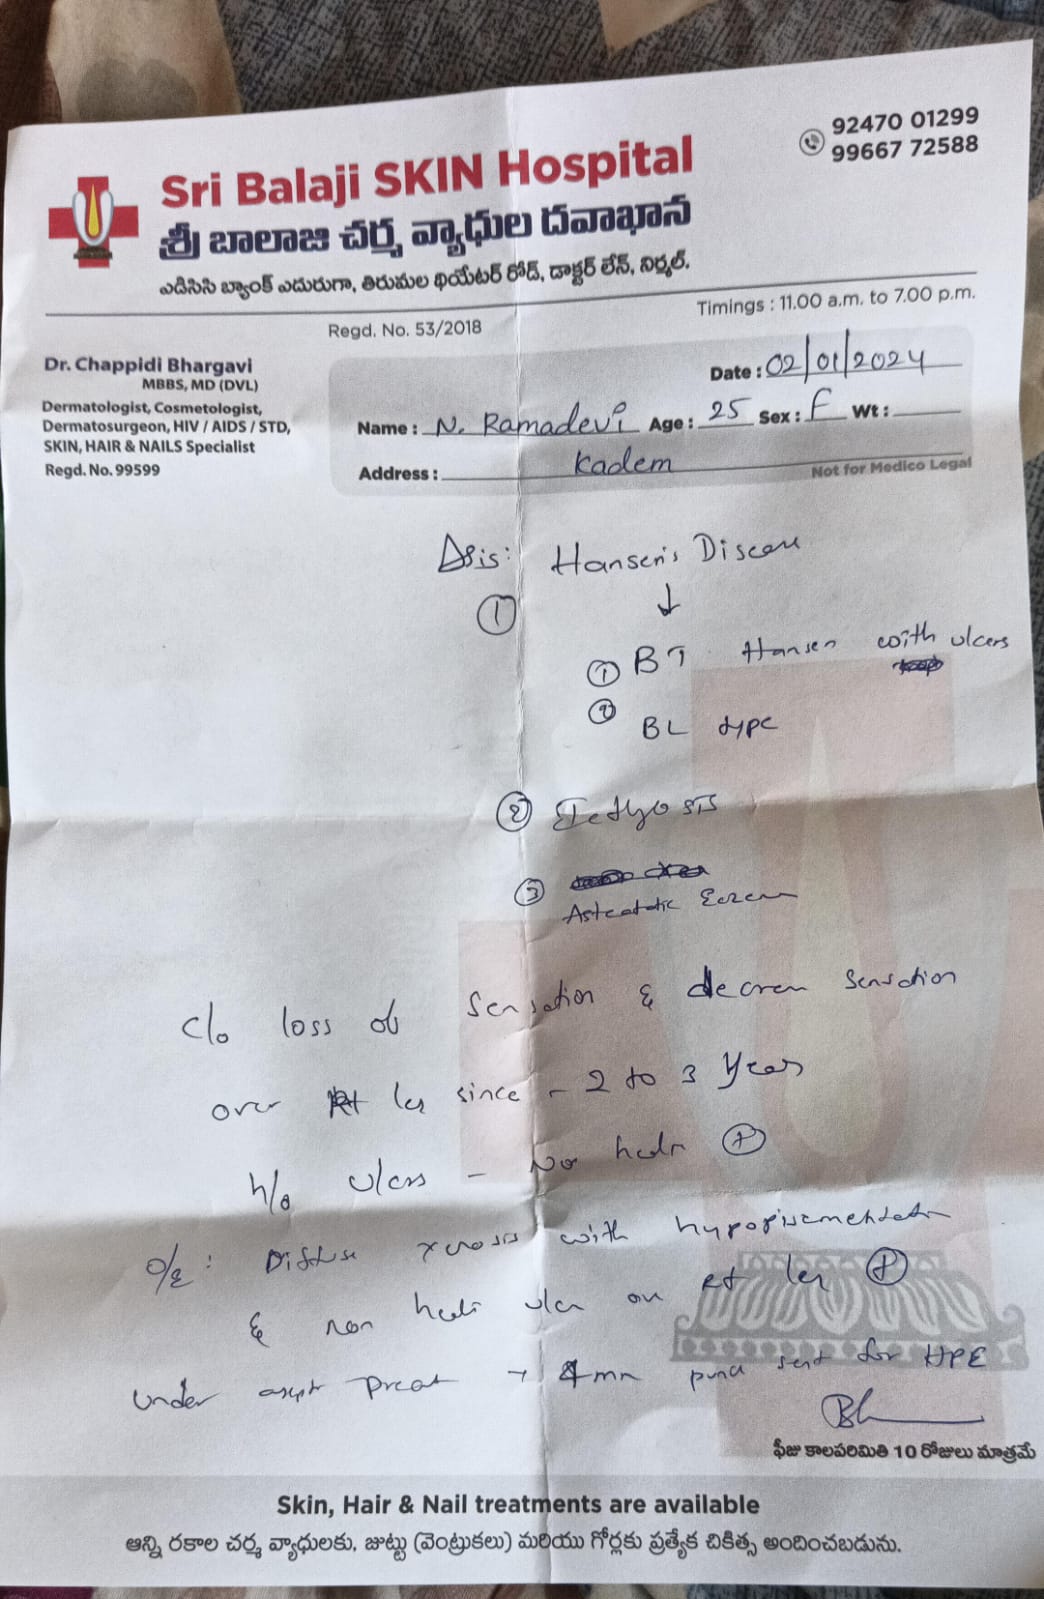 92470 01299
99667 72588
Sri Balaji SKIN Hospital
శ్రీ బాలాజి చర్మ వ్యాధుల దవాఖాన
ఎడిసిసి బ్యాంక్ ఎదురుగా, తిరుమల థియేటర్ రోడ్, డాక్టర్ లేన్, నిర్మల్.
Timings : 11.00 a.m. to 7.00 p.m.
Regd. No. 53/2018
Dr. Chappidi Bhargavi
MBBS, MD (DVL)
Dermatologist, Cosmetologist,
Dermatosurgeon, HIV / AIDS / STD,
SKIN, HAIR & NAILS Specialist
Regd. No. 99599
Date : 02/01/2024
Name : N. Ramadevi Age : 25 Sex : F Wt :
Address : Kadem
Not for Medico Legal
Hansen's Disease
①
↓
① BT Hansen with ulcers
② BL type
②
③
Asteatotic Eczema
c/o loss of sensation & decrease sensation
over leg since - 2 to 3 Years
h/o ulcers - heal +
O/E : Diffuse xerosis with hypopigmentation
& non heal ulcer on Rt leg +
Under 4mm punch sent for HPE
ఫీజు కాలపరిమితి 10 రోజులు మాత్రమే
Skin, Hair & Nail treatments are available
అన్ని రకాల చర్మ వ్యాధులకు, జుట్టు (వెంట్రుకలు) మరియు గోర్లకు ప్రత్యేక చికిత్స అందించబడును.